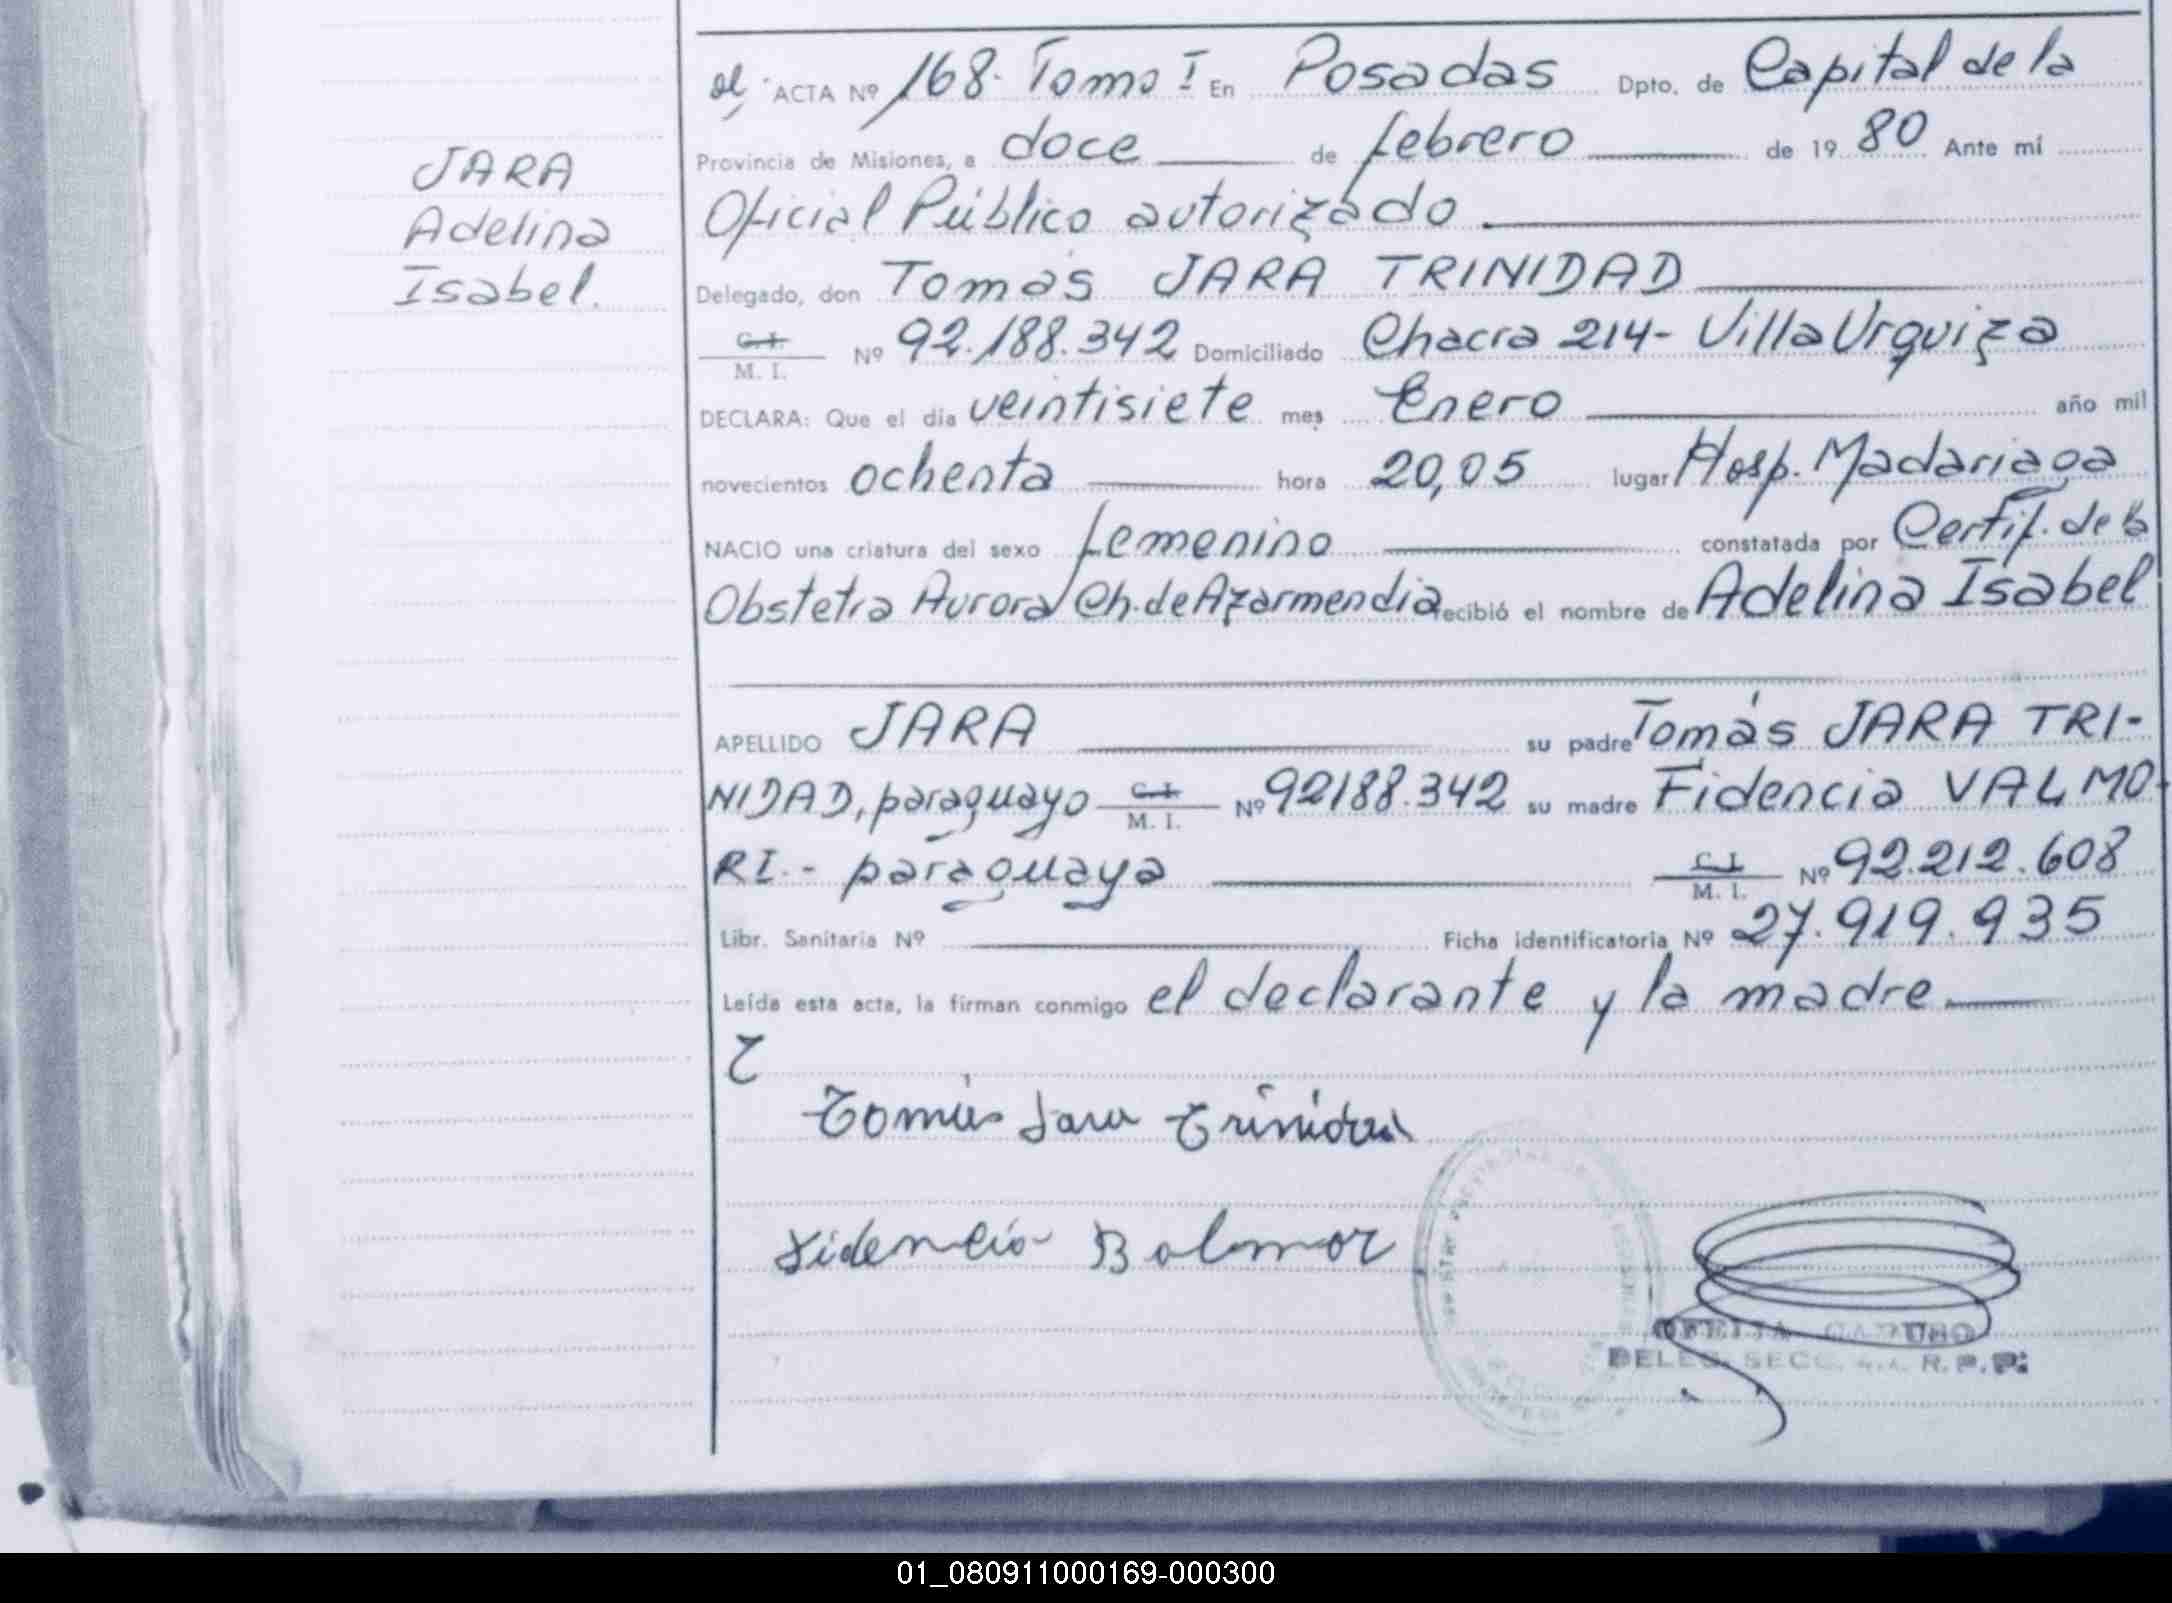 JARA
Adelina
Isabel.
ACTA Nº 168. Tomo I En Posadas Dpto. de Capital de la
Provincia de Misiones, a doce de febrero de 19 80 Ante mí
Oficial Público autorizado
Delegado, don Tomas JARA TRINIDAD
C. I.
M. I. Nº 92.188.342 Domiciliado Chacra 214- Villa Urquiza
DECLARA: Que el día veintisiete mes Enero año mil
novecientos ochenta hora 20,05 lugar Hosp. Madariaga
NACIO una criatura del sexo femenino constatada por Certif. de la
Obstetra Aurora Ch. de Azarmendia recibió el nombre de Adelina Isabel
APELLIDO JARA su padre Tomás JARA TRI-
NIDAD, paraguayo C. I. M. I. Nº 92188.342 su madre Fidencia VALMO-
RI.- paraguaya C. I. M. I. Nº 92.212.608
Libr. Sanitaria Nº Ficha identificatoria Nº 27.919.935
Leída esta acta, la firman conmigo el declarante y la madre
Tomás Jara Trinidad
Fidencia Balmor
DELEG. SECC. R.P.P.
01_080911000169-000300